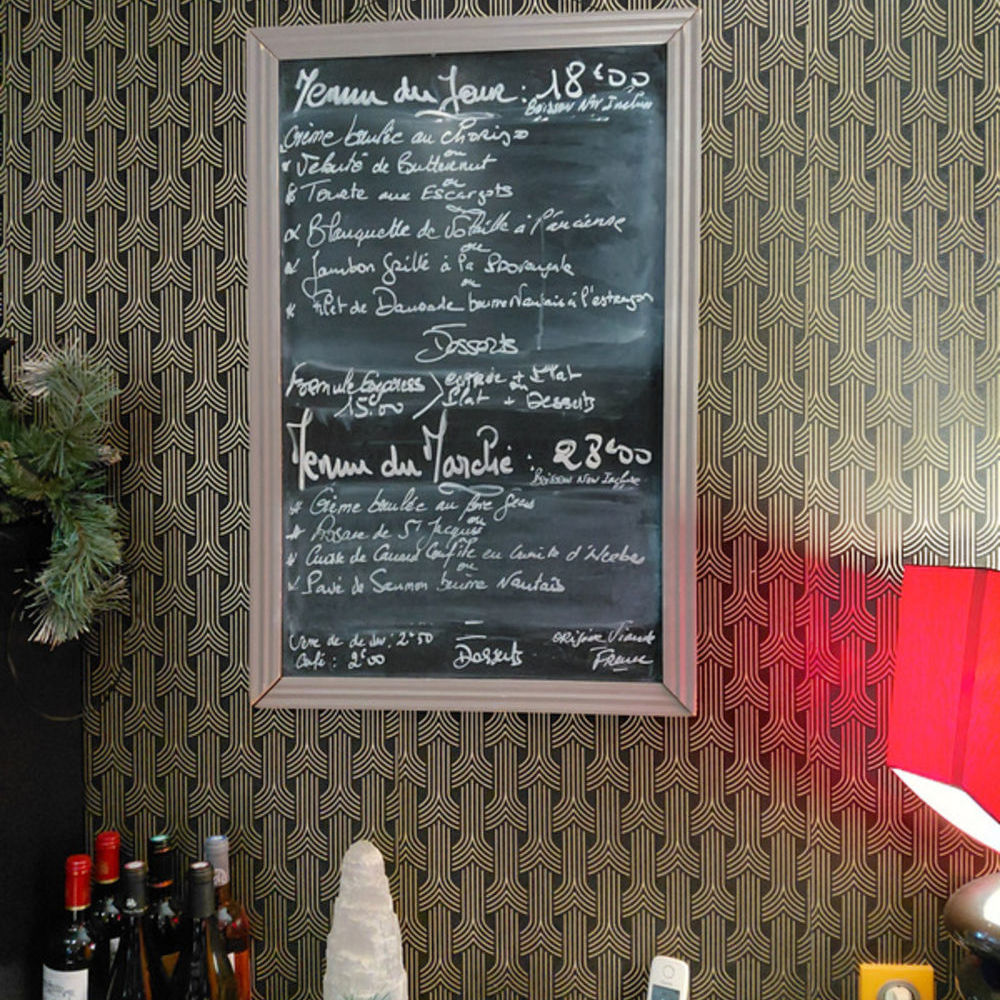 Menu du Jour : 18€00
Boisson Non Incluse
Crème brulée au Chorizo
ou
* Velouté de Butternut
ou
* Tourte aux Escargots
* Blanquette de Volaille à l'ancienne
ou
* Jambon Grillé à la
ou
* Filet de Daurade beurre Nantais à l'estragon
Desserts
Formule Express
15€00
entrée + Plat
ou
Plat + Desserts
Menu du Marché : 28€00
Boisson Non Incluse
* Crème brulée au foie Gras
ou
* de St Jacques
* Cuisse de Canard Confite en d'
ou
* Pavé de Saumon beurre Nantais
Verre de : 2€50
Café : 2€00
Desserts
origine Viande
France